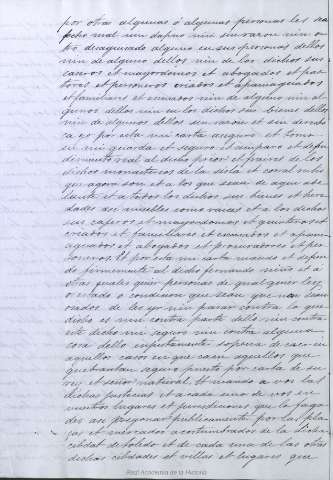 por otras algunas o algunas personas les sea
fecho mal nin dapno nin sin razon nin otro
desaguisado alguno en sus personas dellos
nin de alguno dellos nin de los dichos sus
caseros et mayordomos et abogados et pas
tores et personeros criados et apaniaguados
et familiares et escusados nin de alguno nin al
gunos dellos nin en los dichos sus bienes dellos
nin de algunos dellos sin razon et sin derecho
ca yo por esta mi carta aseguro et tomo
en mi guarda et seguro et amparo et defen
dimiento real al dicho prior et frailes de los
dichos monasterios de la sisla et corral rubio
que agora son et a los que seran de aqui ade
lante et a todos los dichos sus bienes et here
dades asi muebles como raices et a los dichos
sus caseros et mayordomos et quinteros et
criados et familiares et escusados et apani
aguados et abogados et procuradores et per
soneros. Et por esta mi carta mando et defien
do firmemente al dicho fernando niño et a
otras quales quier personas de qualquier ley
o estado o condicion que sean que non sean
osados de les yr nin pasar contra lo que
dicho es nin contra parte dello nin contra
este dicho mi seguro nin contra alguna
cosa dello so pena de caer en
aquellos casos en que caen aquellos que
quebrantan seguro puesto por carta de su
rey et señor natural. Et mando a vos las
dichas justicias et a cada uno de vos en
vuestros lugares et jurediciones que lo fagades
asi pregonar publicamente por las pla
zas et mercados acostumbrados de la dicha
cibdat de toledo et de cada una de las otras
dichas cibdades et villas et lugares que
Real Academia de la Historia